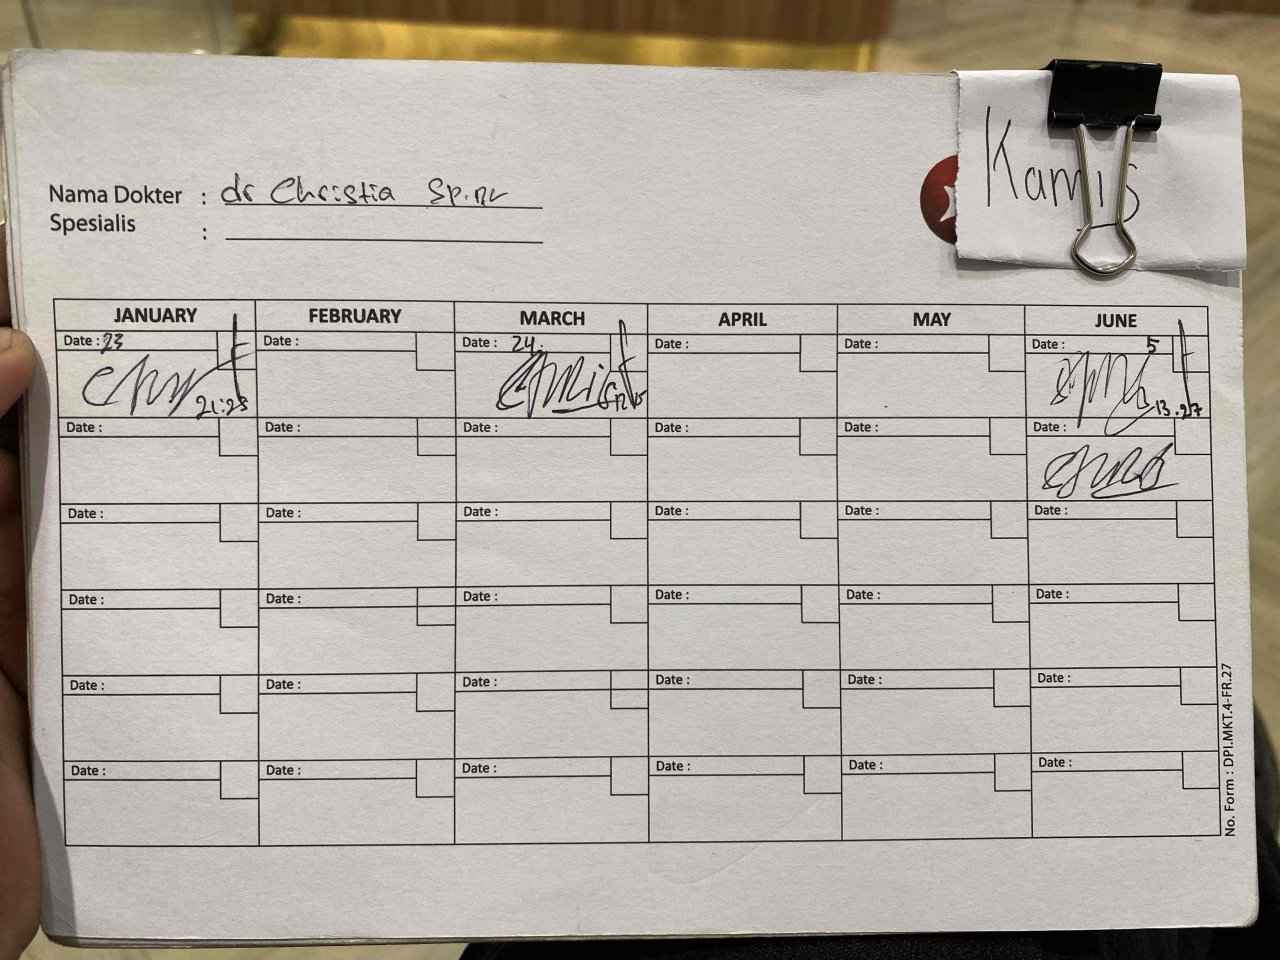 Kamis
Nama Dokter : dr Christia Sp.nr
Spesialis :
JANUARY FEBRUARY MARCH APRIL MAY JUNE
Date : 23 Date : Date : 24. Date : Date : Date : 5
21:23 13.27
Date : Date : Date : Date : Date : Date :
Date : Date : Date : Date : Date : Date :
Date : Date : Date : Date : Date : Date :
Date : Date : Date : Date : Date : Date :
Date : Date : Date : Date : Date : Date :
No. Form : DPI.MKT.4-FR.27